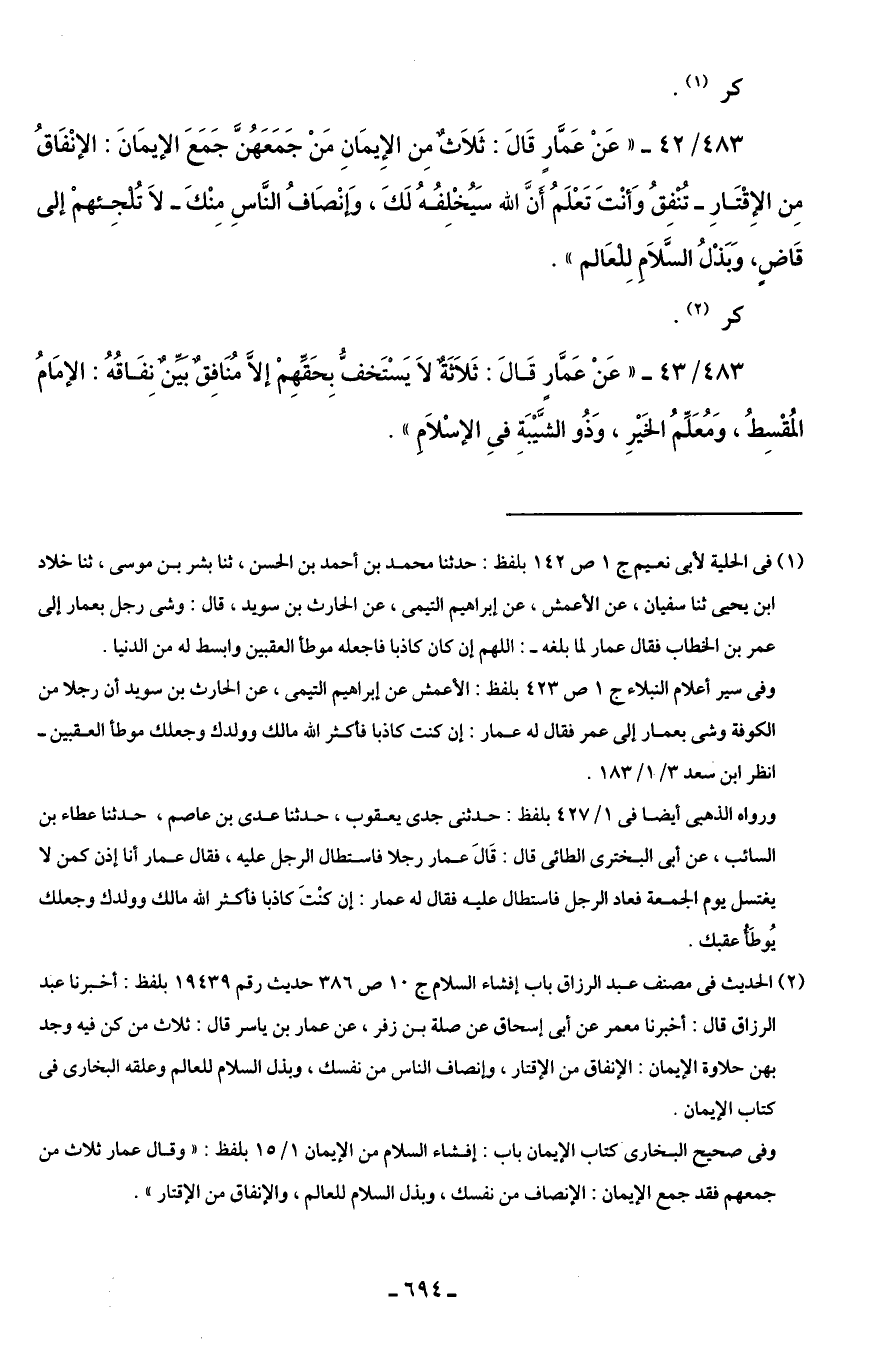 كر (١) .
٤٨٣/ ٤٢ ـ « عَنْ عَمَّارٍ قَالَ : ثَلاَثٌ مِن الإِيمَانِ مَنْ جَمَعَهُنَّ جَمَعَ الإِيمَانَ : الإِنْفَاقُ
مِن الإِقْتَـارِ ـ تُنْفِقُ وَأَنْتَ تَعْلَمُ أَنَّ الله سَيُخْلِفُـهُ لَكَ ، وَإِنْصَافُ النَّاسِ مِنْكَ ـ لاَ تُلْجِـئهمْ إلى
قَاضٍ، وَبَذْلُ السَّلاَمِ لِلْعَالم » .
كر (٢) .
٤٨٣/ ٤٣ ـ « عَنْ عَمَّارٍ قَـالَ : ثَلاَثَةٌ لاَ يَسْتَخفُّ بِحَقِّهِمْ إلاَّ مُنَافِقٌ بَيِّنٌ نِفَـاقُهُ : الإِمَامُ
المُقْسِطُ ، وَمُعَلِّمُ الخَيْرِ ، وَذُو الشَّيْبَةِ فىِ الإِسْلاَمِ » .
(١) فى الحلية لأبى نعـيم ج ١ ص ١٤٢ بلفظ : حدثنا محمـد بن أحمد بن الحسن ، ثنا بشر بـن موسى ، ثنا خلاد
ابن يحيى ثنا سفيان ، عن الأعمش ، عن إبراهيم التيمى ، عن الحارث بن سويد ، قال : وشى رجل بعمار إلى
عمر بن الخطاب فقال عمار لما بلغه ـ : اللهم إن كان كاذبا فاجعله موطأ العقبين وابسط له من الدنيا .
وفى سير أعلام النبلاء ج ١ ص ٤٢٣ بلفظ : الأعمش عن إبراهيم التيمى ، عن الحارث بن سويد أن رجلا من
الكوفة وشى بعمـار إلى عمر فقال له عـمار : إن كنت كاذبا فأكـثر الله مالك وولدك وجعلك موطأ العـقبين ـ
انظر ابن سعد ٣/ ١/ ١٨٣ .
ورواه الذهبى أيضـا فى ١/ ٤٢٧ بلفظ : حـدثنى جدى يعـقوب ، حـدثنا عـدى بن عاصم ، حـدثنا عطاء بن
السائب ، عن أبى البـخترى الطائى قال : قَالَ عـمار رجلا فاسـتطال الرجل عليه ، فقال عـمار أنا إذن كمن لا
يغتسل يوم الجمـعة فعاد الرجل فاستطال عليـه فقال له عمار : إن كنْتَ كاذبا فأكـثر الله مالك وولدك وجعلك
يُوطَأُ عقبك .
(٢) الحديث فى مصنف عـبد الرزاق باب إفشاء السلام ج ١٠ ص ٣٨٦ حديث رقم ١٩٤٣٩ بلفظ : أخـبرنا عبد
الرزاق قال : أخبرنا معمر عن أبى إسحاق عن صلة بـن زفر ، عن عمار بن ياسر قال : ثلاث من كن فيه وجد
بهن حلاوة الإيمان : الإنفاق من الإقتار ، وإنصاف الناس من نفسك ، وبذل السلام للعالم وعلقه البخارى فى
كتاب الإيمان .
وفى صحيح البـخارى كتاب الإيمان باب : إفـشاء السلام من الإيمان ١/ ١٥ بلفظ : « وقـال عمار ثلاث من
جمعهم فقد جمع الإيمان : الإنصاف من نفسك ، وبذل السلام للعالم ، والإنفاق من الإقتار » .
ـ ٦٩٤ ـ